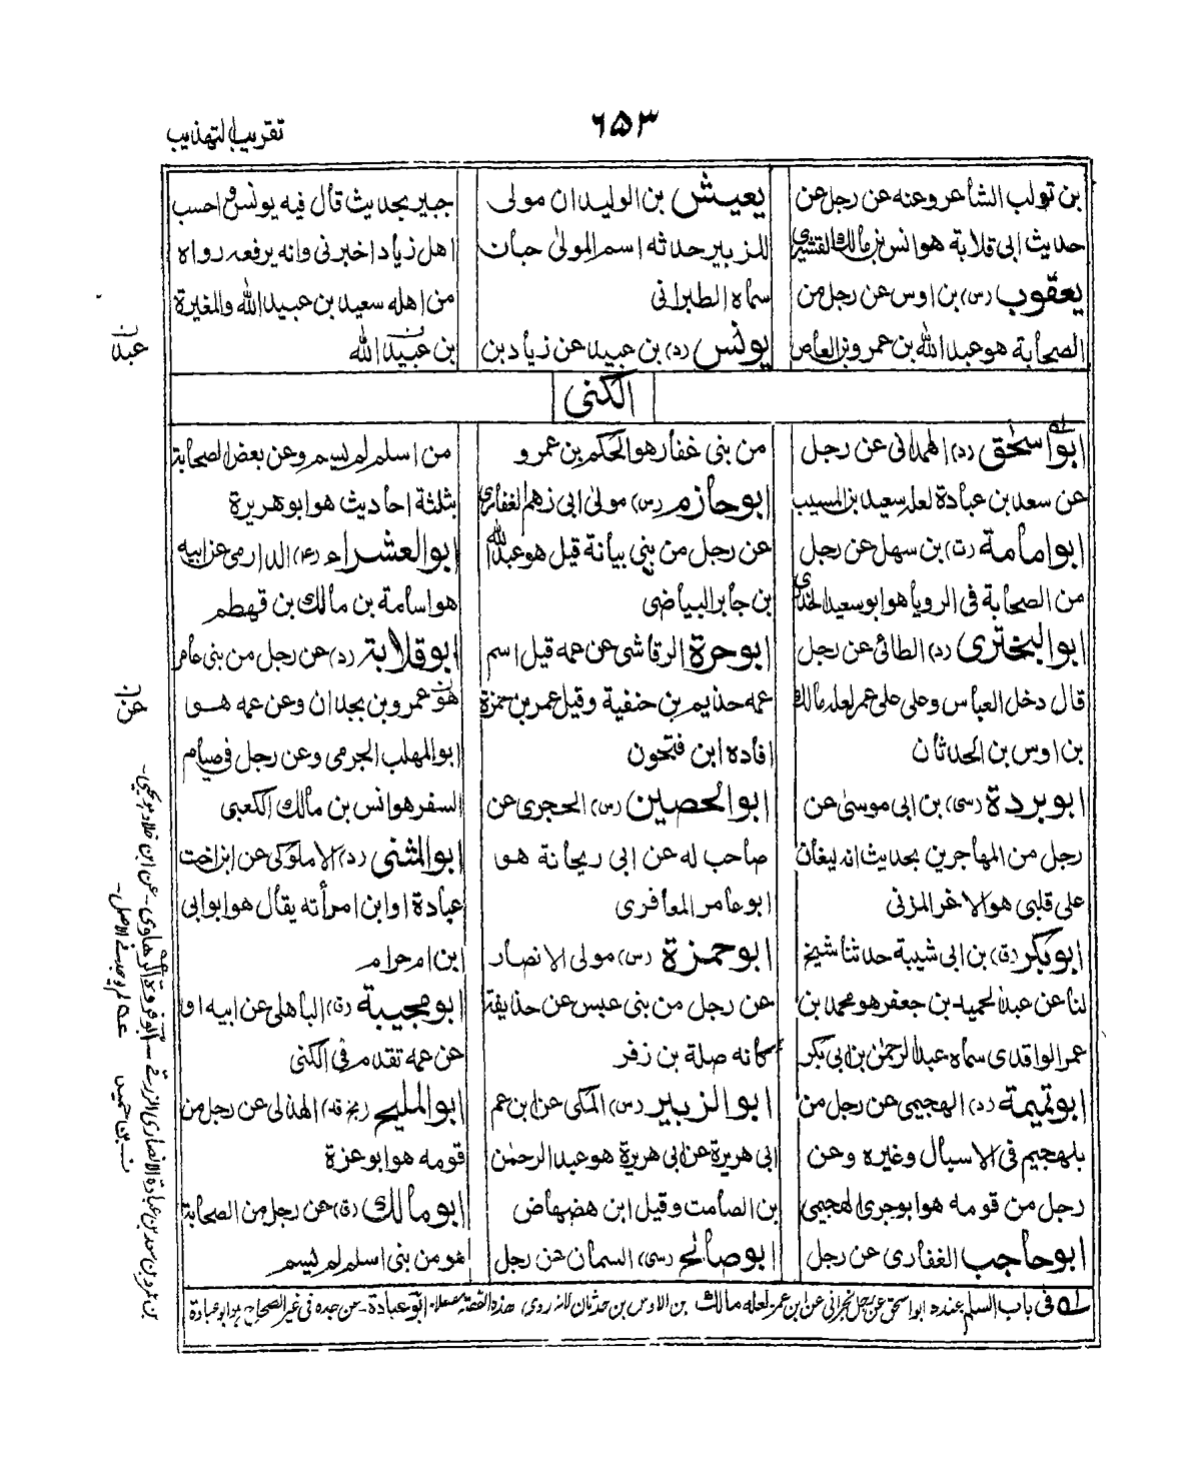 تقريب التهذيب
٦٥٣
بن تولب الشاعر وعنه عن رجل عن
حديث ابى قلابة هو انس بن مالك القشيرى
يعقوب (س) بن اوس عن رجل من
الصحابة هو عبد الله بن عمرو بن العاص
يعيش بن الوليد ان مولى
للزبير حدثه اسم المولىٰ حبان
سماه الطبرانى
يونس (د) بن عبيد عن زياد بن
جبير بحديث قال فيه يونس واحسب
اهل زياد اخبرنى وانه يرفعه رواه
من اهله سعيد بن عبيد الله والمغيرة
بن عبيد الله
الكنى
ابو اسحٰق (د) الهمدانى عن رجل
عن سعد بن عبادة لعله سعيد بن المسيب
ابو امامة (ت) بن سهل عن رجل
من الصحابة فى الرويا هو ابو سعيد الخدرى
ابو البخترى (د) الطائى عن رجل
قال دخل العباس وعلى على عمر لعله مالك
بن اوس بن الحدثان
ابو بردة (سى) بن ابى موسىٰ عن
رجل من المهاجرين بحديث انه ليغان
على قلبى هو الاغر المزنى
ابو بكر (ق) بن ابى شيبة حدثنا شيخ
لنا عن عبد الحميد بن جعفر هو محمد بن
عمر الواقدى سماه عبد الرحمٰن بن ابى بكر
ابو تميمة (د) الهجيمى عن رجل من
بلهجيم فى الاسبال وغيره وعن
رجل من قومه هو ابو جرى الهجيمى
ابو حاجب الغفارى عن رجل
من بنى غفار هو الحكم بن عمرو
ابو حازم (س) مولىٰ ابى رهم الغفارى
عن رجل من بنى بياضة قيل هو عبد الله
بن جابر البياضى
ابو حرة الرقاشى عن عمه قيل اسم
عمه حذيم بن حنفية وقيل عمر بن حمزة
افاده ابن فتحون
ابو الحصين (س) الحجرى عن
صاحب له عن ابى ريحانة هو
ابو عامر المعافرى
ابو حمزة (س) مولى الانصار
عن رجل من بنى عبس عن حذيفة
كانه صلة بن زفر
ابو الزبير (س) المكى عن ابن عم
ابى هريرة عن ابى هريرة هو عبد الرحمٰن
بن الصامت وقيل ابن هضهاض
ابو صالح (سى) السمان عن رجل
من اسلم لم يسم وعن بعض الصحابة
بثلثة احاديث هو ابو هريرة
ابو العشراء (ع) الدارمى عن ابيه
هو اسامة بن مالك بن قهطم
ابو قلابة (د) عن رجل من بنى عامر
هو عمرو بن بجدان وعن عمه هو
ابو المهلب الجرمى وعن رجل فى صيام
السفر هو انس بن مالك الكعبى
ابو المثنى (د) الاملوكى عن ابن اخت
عبادة او ابن امرأته يقال هو ابو ابى
ابن ام حرام
ابو مجيبة (ق) الباهلى عن ابيه او
عن عمه تقدم فى الكنى
ابو المليح (بخ قد) الهذلى عن رجل من
قومه هو ابو عزة
ابو مالك (ق) عن رجل من الصحابة
هو من بنى اسلم لم يسم
له فى باب السلم عنده ابو اسحق عن رجل نجرانى عن ابن عمر لعله مالك بن الاوس بن حدثان لانه روى هذه القصة مفصلا ابو عبادة